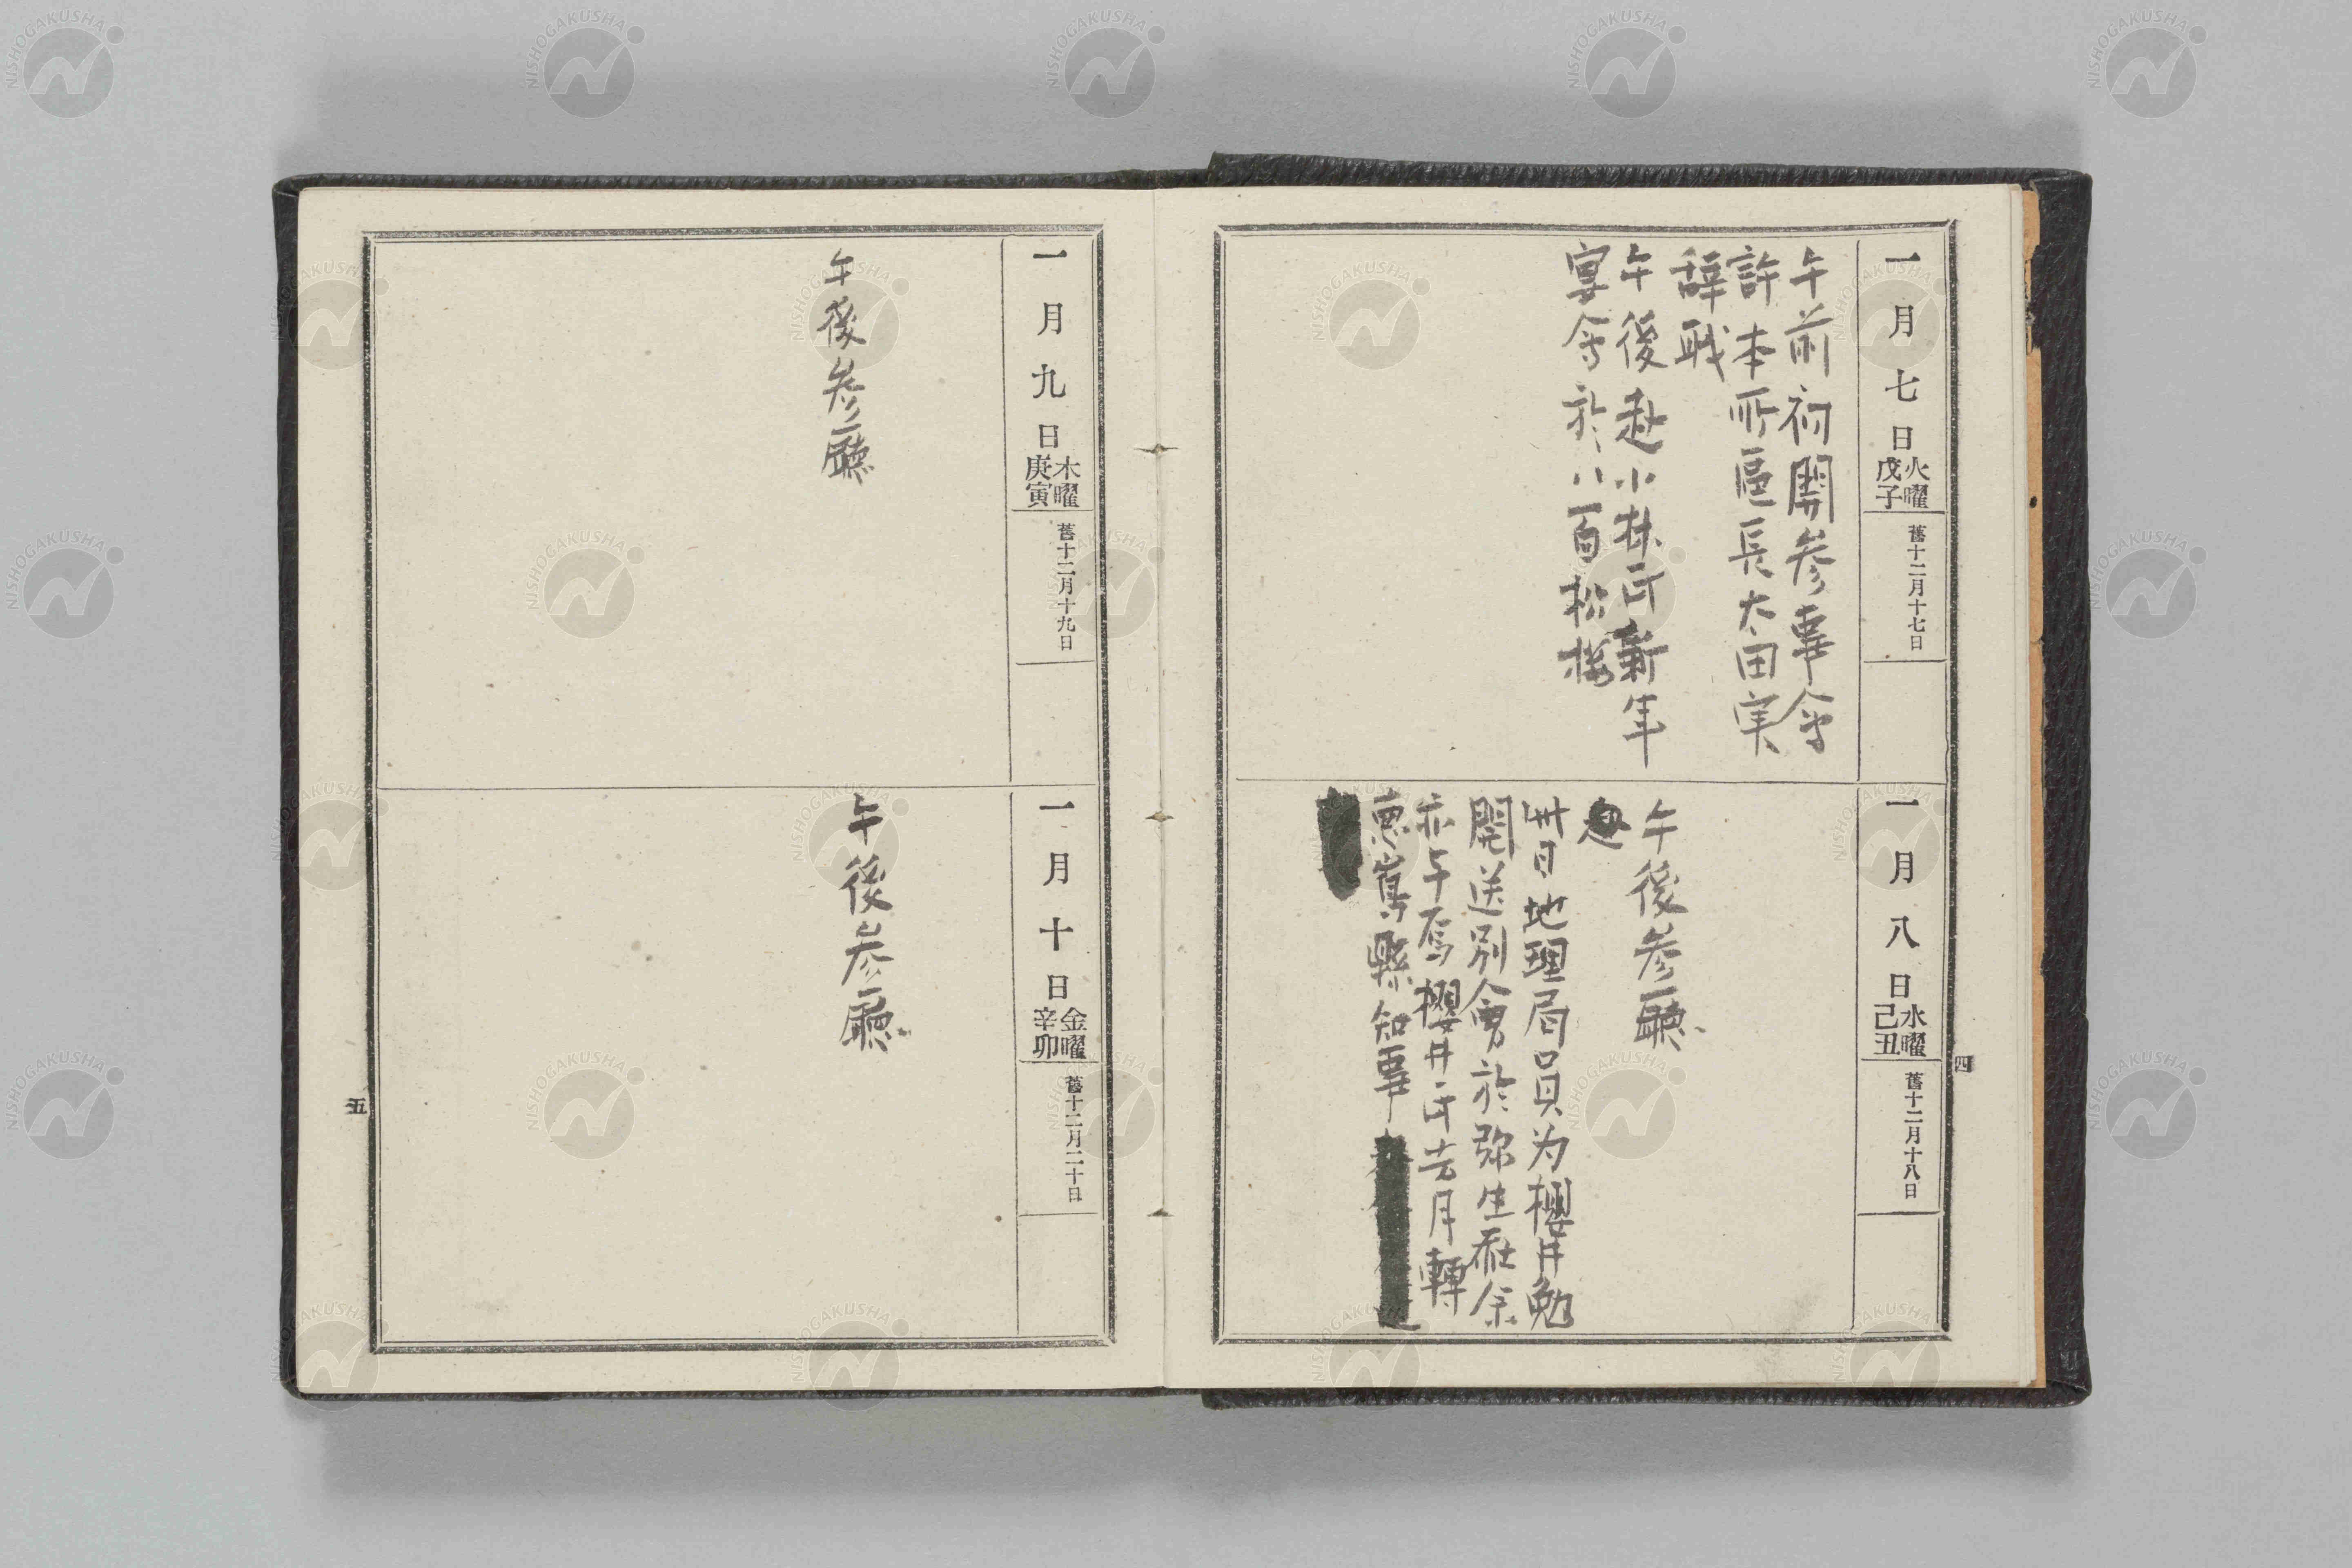 一月七日 火曜 戊子 舊十二月十七日
午前初開参事会
許本所區長太田実
辞職
午後赴小林氏新年
宴会於八百松楼
一月八日 水曜 己丑 舊十二月十八日
午後参廳
此日地理局員为櫻井勉
開送別會於弥生社余
亦与焉櫻井氏去月轉
徳嶌縣知事
四
一月九日 木曜 庚寅 舊十二月十九日
午後参廳
一月十日 金曜 辛卯 舊十二月二十日
午後参廳
五
NISHOGAKUSHA